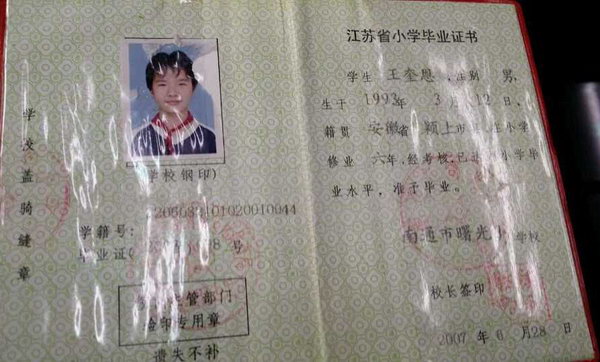 学校盖骑缝章
(学校钢印)
学籍号:
毕业证(
号
管部门
验印专用章
遗失不补
江苏省小学毕业证书
学生 王奎恩 ,性别 男,
生于 1993年 3月12日,
籍贯 安徽省颍上市 小学
修业 六年,经考核,已 小学毕
业水平,准予毕业。
南通市曙光小学校
校长签印
2007 年 6 月28 日